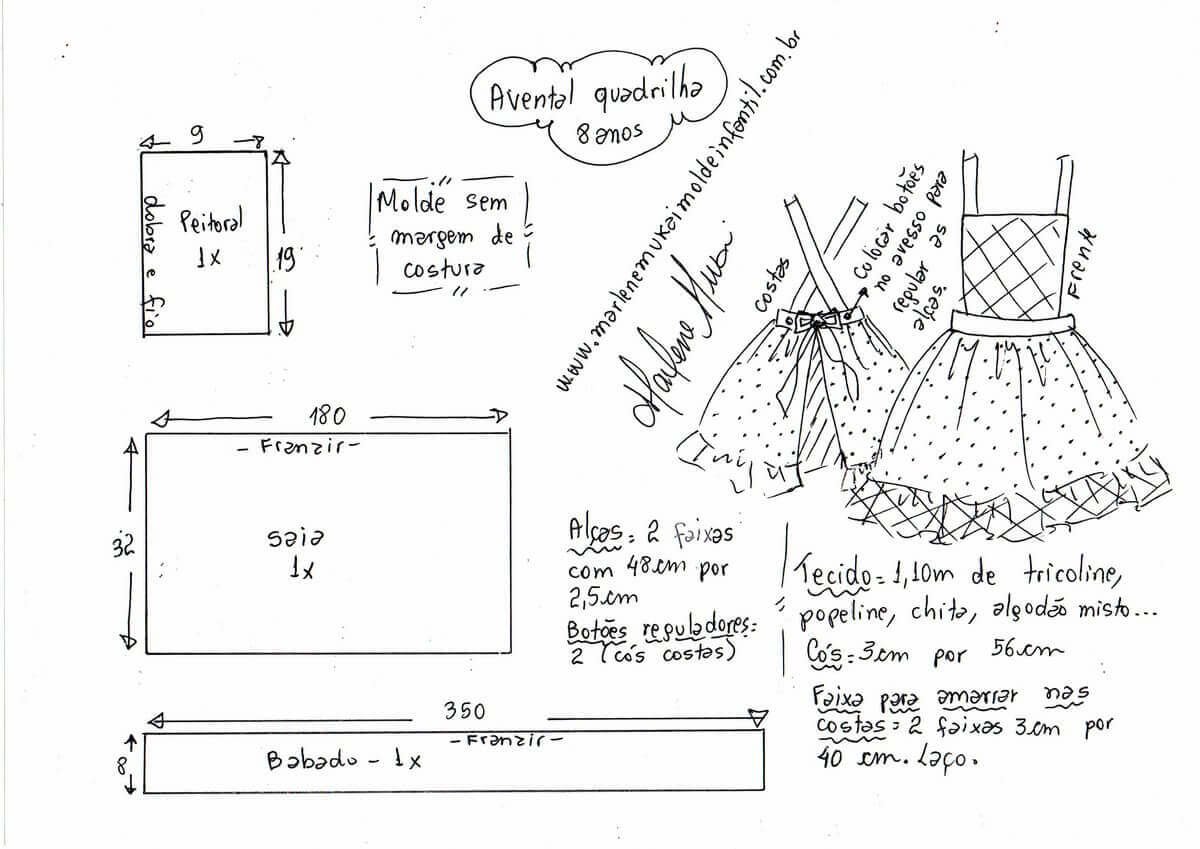 Avental quadrilha
8 anos
www.marlenemukaimoldeinfantil.com.br
9
dobra e fio
Peitoral
1x
19
Molde sem
margem de
costura
costas
Colocar botões
no avesso para
regular as
alças.
Frente
180
- Franzir -
32
saia
1x
350
- Franzir -
8
Babado - 1x
Alças = 2 faixas
com 48cm por
2,5cm
Botões reguladores=
2 (cós costas)
Tecido = 1,10m de tricoline,
popeline, chita, algodão misto...
Cós = 3cm por 56cm
Faixa para amarrar nas
costas = 2 faixas 3cm por
40 cm. Laço.